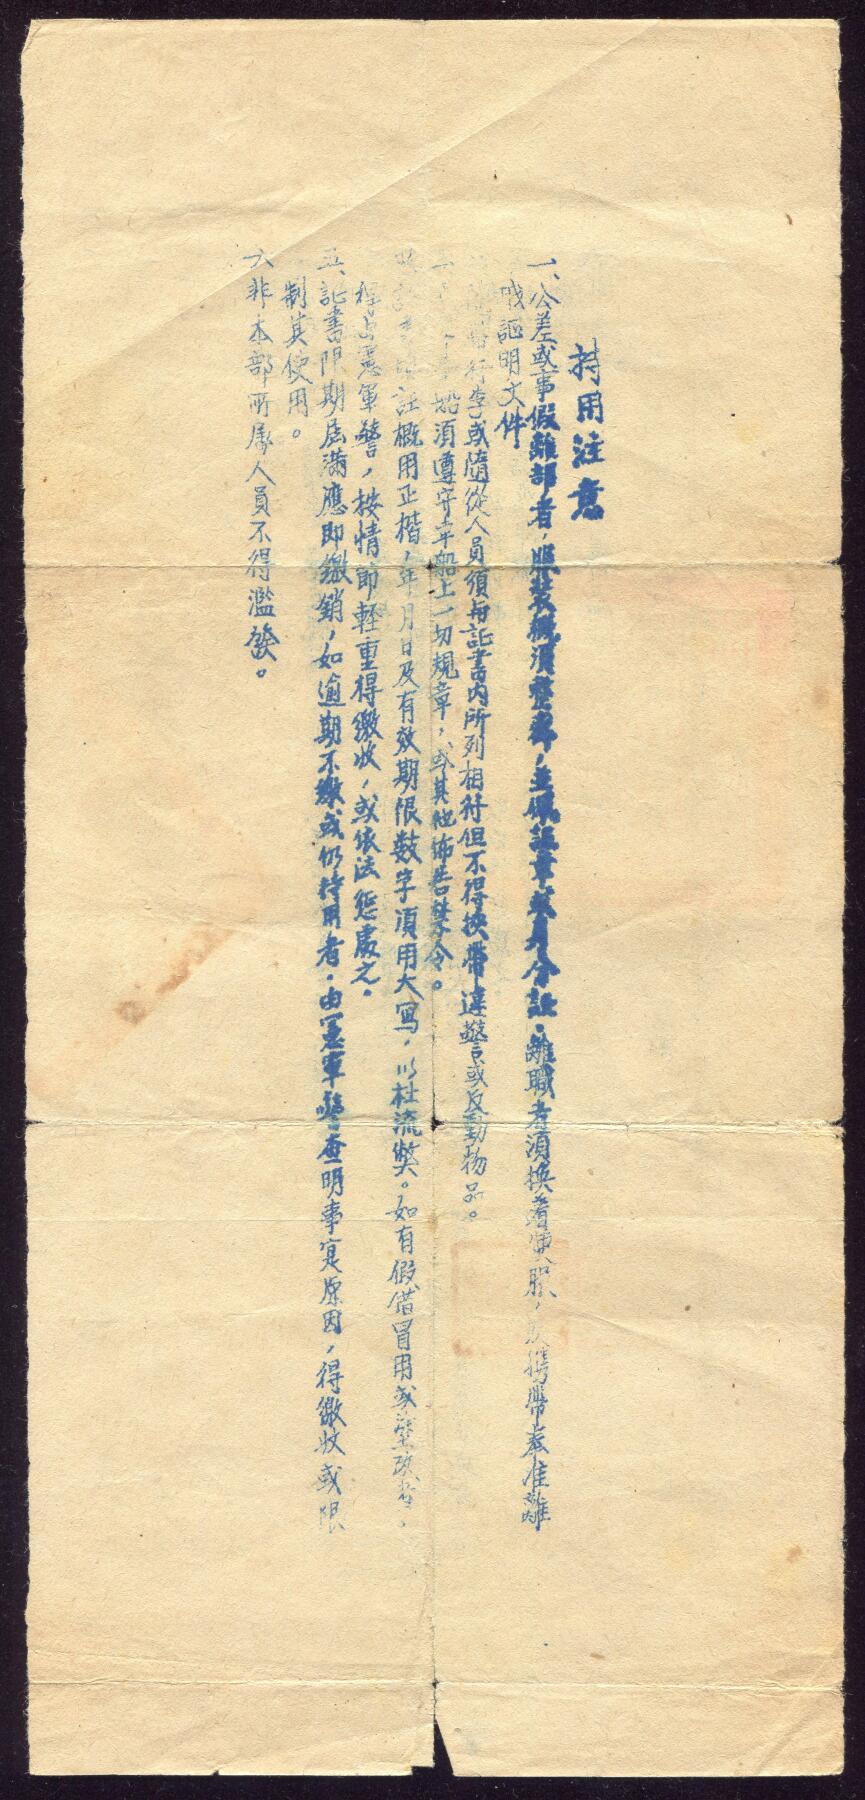 持用注意
一、公差或事假離部者，服裝概須整齊，並佩証章或身分証。離職者須換著便服，攜帶奉准離
職証明文件
行李或隨從人員須與証書內所列相符但不得挾帶違警或反動物品。
船須遵守車船上一切規章，或其他佈告禁令。
註概用正楷，年月日及有效期限數字須用大寫，以杜流獘。如有假借冒用或塗改者，
憲軍警，按情節輕重得繳收，或依法懲處之。
五、証書限期屆滿應即繳銷，如逾期不繳或仍持用者，由憲軍警查明事実原因，得繳收或限
制其使用。
六非本部所屬人員不得濫發。